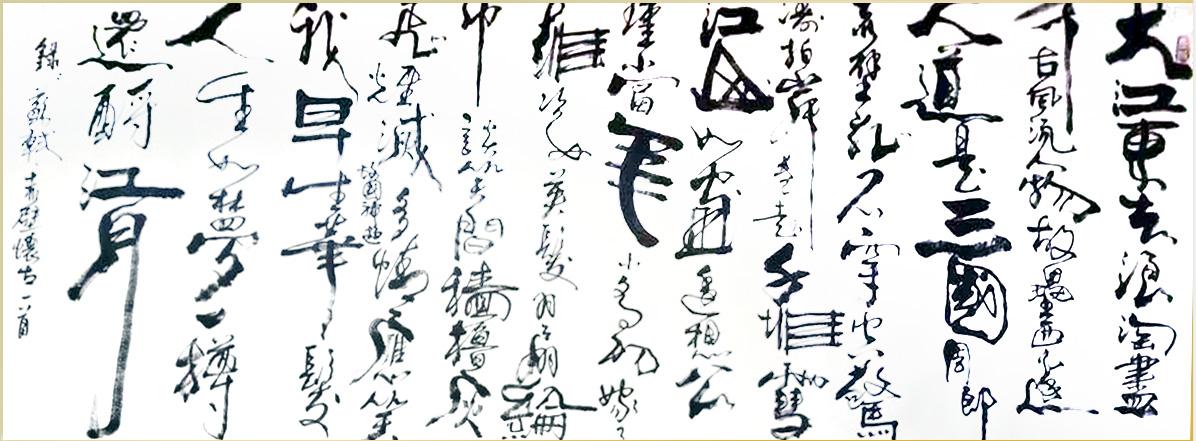 大江東去浪淘盡
千古風流人物故壘西邊
人道是三國周郎
赤壁亂石穿空驚
濤拍岸捲起千堆雪
江山如畫遙想公
瑾當年小喬初嫁了
雄姿英發羽扇綸
巾談笑間檣櫓灰
飛煙滅多情應笑
故國神遊
我早生華髮
人生如夢一樽
還酹江月
錄蘇軾赤壁懷古一首